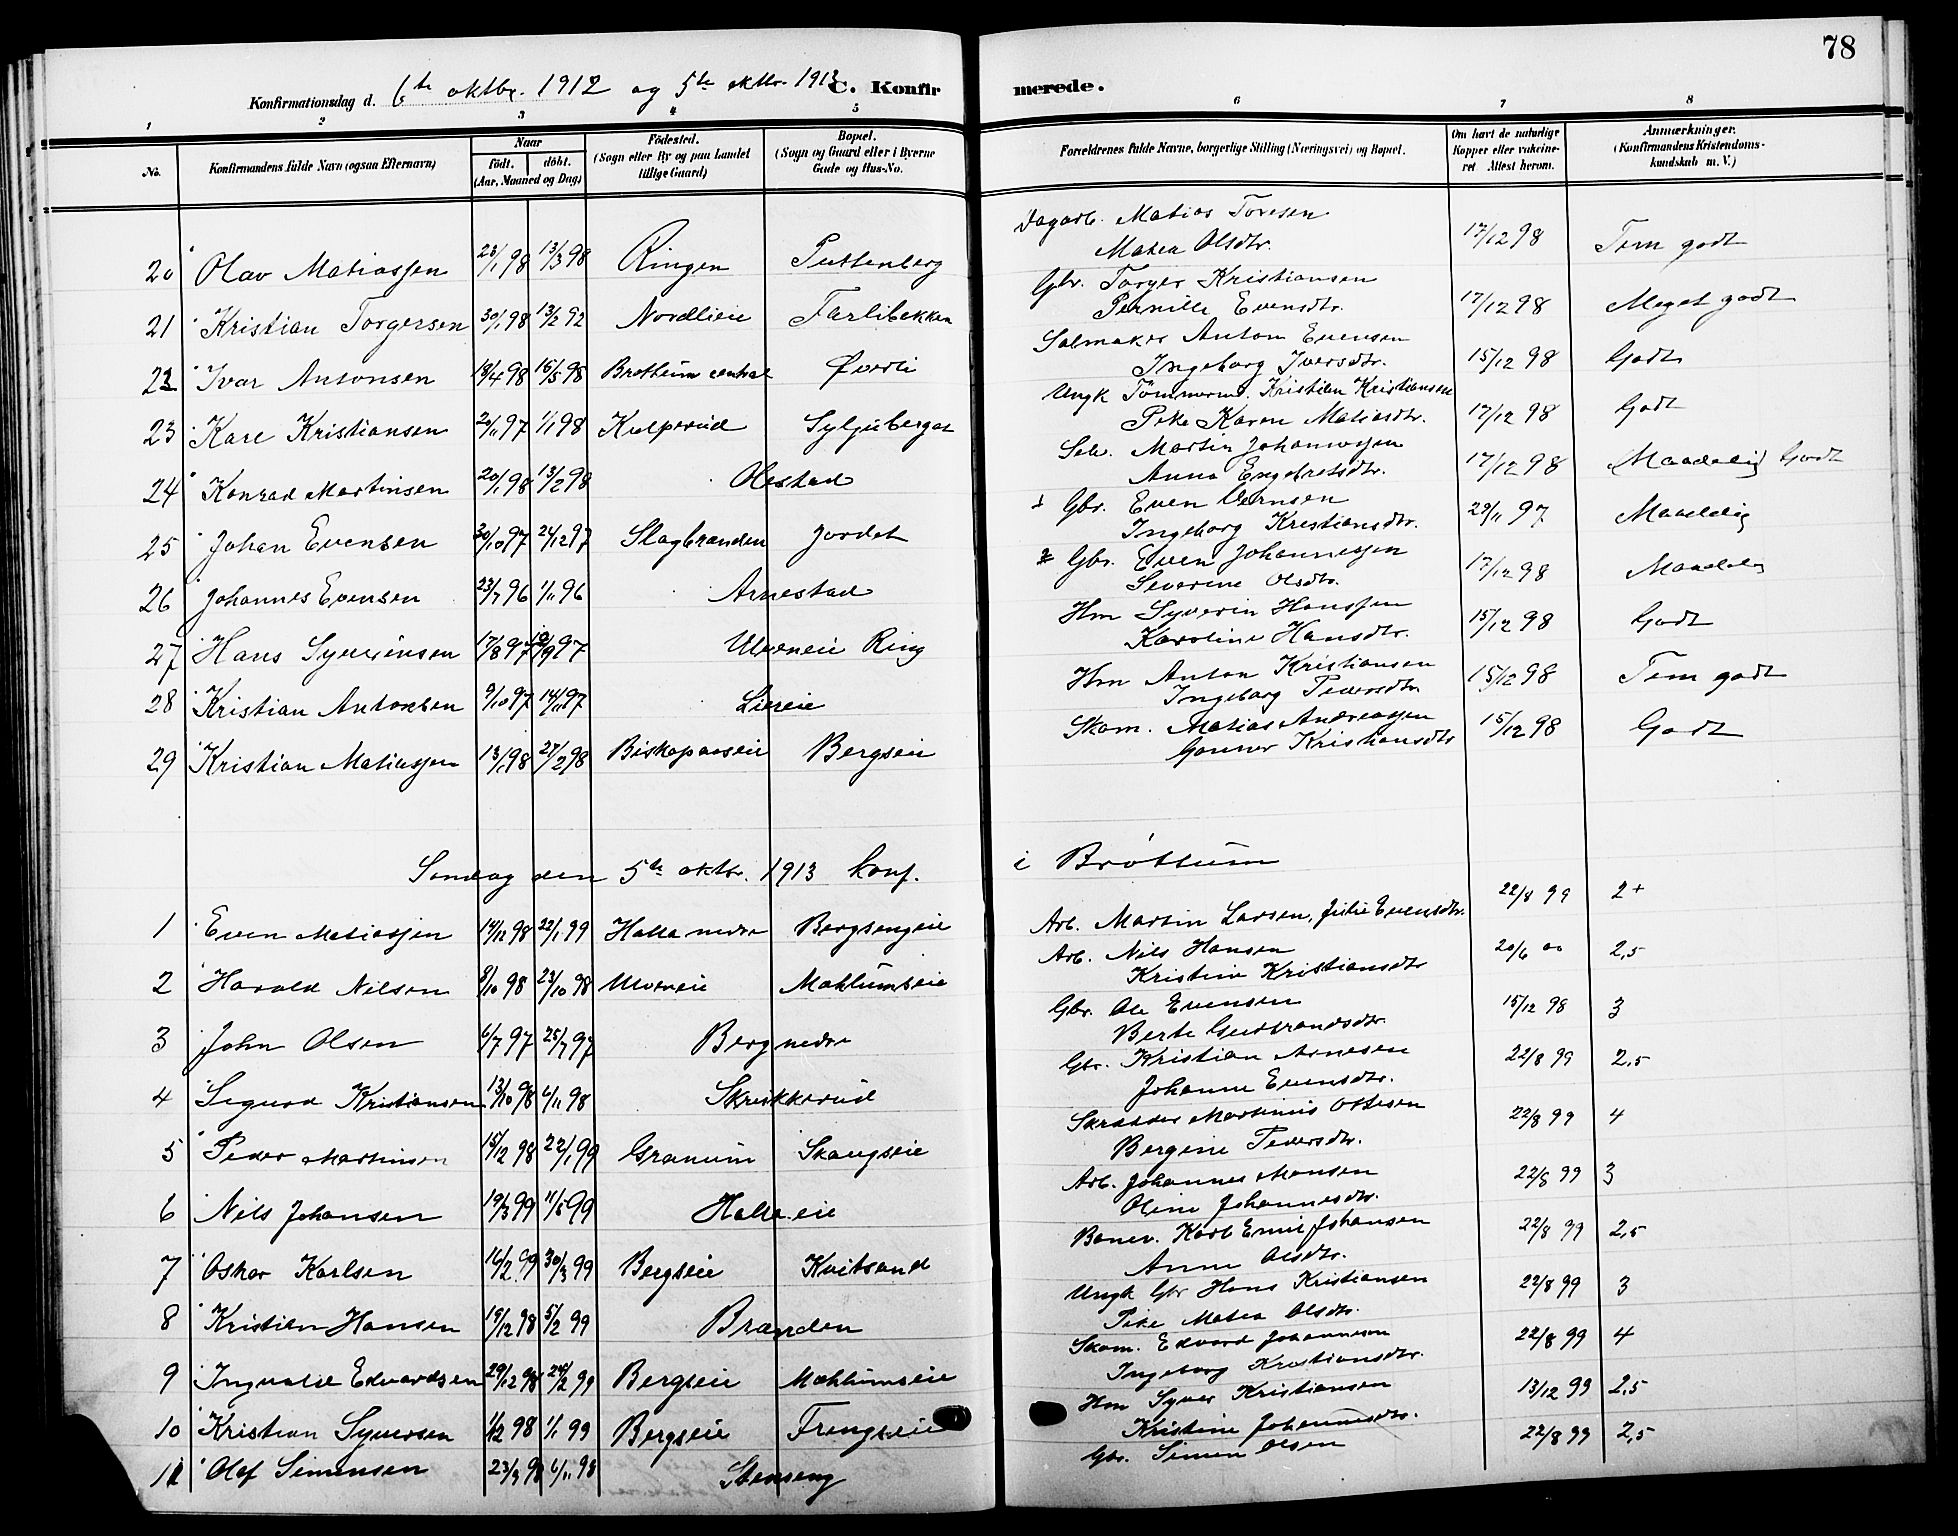 78
Konfirmationsdag d. 6te oktbr. 1912 og 5te oktbr. 1913 C. Konfirmerede.
1 2 3 4 5 6 7 8
No. Konfirmandens fulde Navn (ogsaa Efternavn) Naar födt. döbt. (Aar, Maaned og Dag) Födested. (Sogn eller By og paa Landet tillige Gaard) Bopæl. (Sogn og Gaard eller i Byerne Gade og Hus-No. Forældrenes fulde Navne, borgerlige Stilling (Næringsvei) og Bopæl. Om havt de naturlige Kopper eller vakcineret Attest herom. Anmærkninger. (Konfirmandens Kristendomskundskab m. V.)
Dagarb. Matias Toresen
20 Olav Matiassen 23/1 98 13/3 98 Ringen Puttenberg Matea Olsdtr. 17/12 98 Tem godt
Gbr. Torger Kristiansen
21 Kristian Torgersen 30/1 98 13/2 92 Nordlieie Farlibakken Pernille Evensdtr. 17/12 98 Meget godt
Salmaker Anton Evensen
22 Ivar Antonsen 18/4 98 15/5 98 Brøttum central Øverli Ingeborg Iversdtr. 15/12 98 Godt
Ungk Tømmerm. Kristian Kristiansen
23 Kare Kristiansen 20/11 97 1/1 98 Kulperud Syljuberget Pike Karen Matiasdtr. 17/12 98 Godt
Selv. Martin Johannessen
24 Konrad Martinsen 20/1 98 13/2 98 Olestad Anna Engebretsdtr. 17/12 98 Maadelig Godt
1 Gbr. Even Evensen
25 Johan Evensen 30/10 97 24/12 97 Slagbranden Jordet Ingeborg Kristiansdtr. 29/11 97 Maadelig
2 Gbr. Even Johannessen
26 Johannes Evensen 23/7 96 1/11 96 Arnestad Severine Olsdtr. 17/12 98 Maadelig
Hm Syverin Hanssen
27 Hans Syverinsen 17/8 97 19/9 97 Ulveneie Ring Karoline Hansdtr. 15/12 98 Godt
Hm Anton Kristiansen
28 Kristian Antonsen 9/10 97 14/11 97 Liereie Ingeborg Pedersdtr 15/12 98 Tem godt
Skom. Matias Andreassen
29 Kristian Matiassen 13/1 98 27/2 98 Biskopaaseie Bergseie Gunner Kristiansdtr 15/12 98 Godt
Søndag den 5te oktbr. 1913 konf. i Brøttum
1 Even Matiassen 14/12 98 22/1 99 Halla nedre Bergsengeie Arb. Martin Larsen, Julie Evensdtr. 22/8 99 2+
Arb. Nils Hansen
2 Harald Nilsen 8/10 98 23/10 98 Ulveneie Mæhlumseie Kristine Kristiansdtr 20/6 00 2,5
Gbr. Ole Evensen
3 John Olsen 6/7 97 25/7 97 Berg nedre Berte Gudbrandsdtr. 15/12 98 3
Gbr. Kristian Arnesen
4 Sigurd Kristiansen 13/10 98 6/11 98 Skrikkerud Johanne Evensdtr. 22/8 99 2,5
Skrædder Martinus Ottesen
5 Peder Martinsen 15/12 98 22/1 99 Granum Skaugseie Bergine Pedersdtr. 22/8 99 4
Arb. Johannes Monsen
6 Nils Johansen 19/3 99 11/5 99 Halla.eie Oline Johannesdtr. 22/8 99 3
Banev. Karl Emil Johansen
7 Oskar Karlsen 16/2 99 30/3 99 Bergseie Kvitsand Anne Olsdtr. 22/8 99 2,5
Ungk Gbr Hans Kristiansen
8 Kristian Hansen 19/12 98 5/2 99 Brænden Pike Matea Olsdtr. 22/8 99 3
Skom. Edvard Johannesen
9 Ingvald Edvardsen 29/12 98 24/2 99 Bergseie Mæhlumseie Ingeborg Kristiansdtr. 22/8 99 4
Hm Syver Kristiansen
10 Kristian Syversen 1/12 98 1/1 99 Bergseie Frengseie Kristine Johannesdtr. 13/12 99 2,5
11 Olaf Simensen 23/9 98 6/11 98 Stenseng Gbr. Simen Olsen 22/8 99 2,5